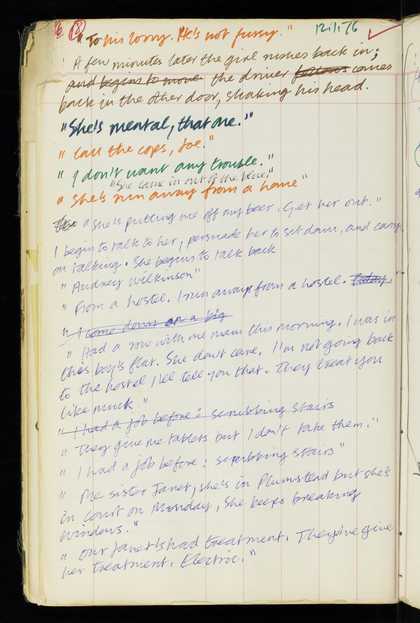 "To his lorry. He's not fussy." 12.1.76
A few minutes later the girl rushes back in;
and begins to move the driver follows comes
back in the other door, shaking his head.
"She's mental, that one."
"Call the cops, Joe."
"I don't want any trouble."
"She came in out of the blue."
"She's run away from a home"
"She's putting me off my beer. Get her out."
I begin to talk to her, persuade her to sit down, and carry
on talking. She begins to talk back
"Audrey Wilkinson"
"From a hostel. I run away from a hostel. Today.
"I come down on a big
"Had a row with me mam this morning. I was in
this boy's flat. She don't care. I'm not going back
to the hostel I'll tell you that. They treat you
like muck"
"I had a job before: scrubbing stairs
"They give me tablets but I don't take them."
"I had a job before: scrubbing stairs"
"Me sister Janet, she's in Plumstead but she's
in court on Monday, she keeps breaking
windows."
"Our Janet's had treatment. They've give
her treatment. Electric."